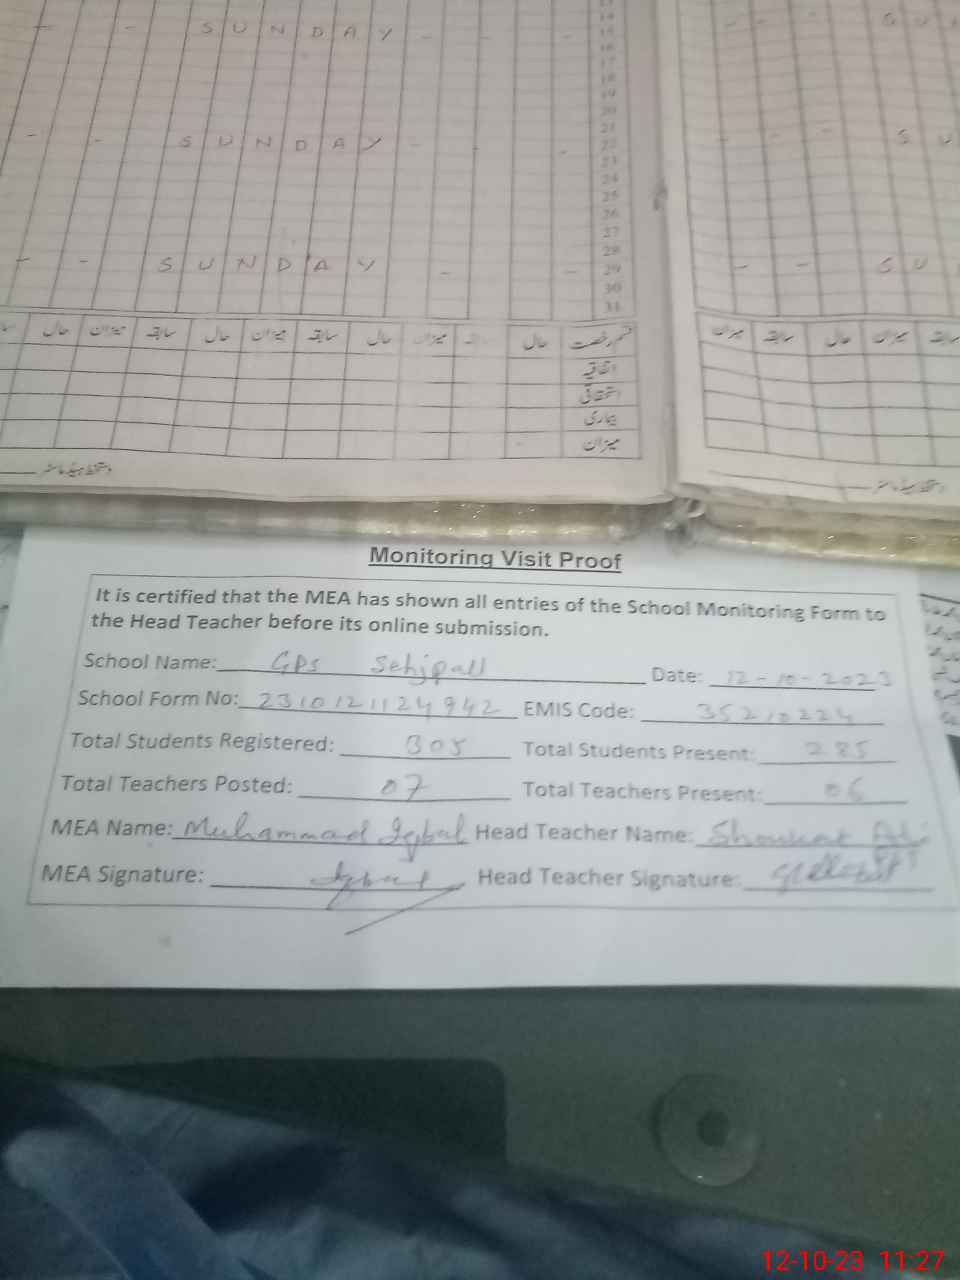 - - S U N D A Y - - -
- - - S U
14
15
16
17
18
19
20
21
- - S U N D A Y - - -
- - - S U
22
23
24
25
26
27
28
- - S U N D A Y - -
- - S U
29
30
31
حال میزان سابقہ حال میزان سابقہ حال میزان حال قسم رخصت
میزان سابقہ حال میزان سابقہ
اتفاقیہ
استحقاقی
بیماری
میزان
دستخط ہیڈ ماسٹر
دستخط ہیڈ ماسٹر
Monitoring Visit Proof
It is certified that the MEA has shown all entries of the School Monitoring Form to
the Head Teacher before its online submission.
School Name: GPS Sehjpall Date: 12-10-2023
School Form No: 2310121124942 EMIS Code: 35210224
Total Students Registered: 305 Total Students Present: 285
Total Teachers Posted: 07 Total Teachers Present: 06
MEA Name: Muhammad Iqbal Head Teacher Name: Shoukat Ali
MEA Signature: Iqbal Head Teacher Signature:
12-10-23 11:27